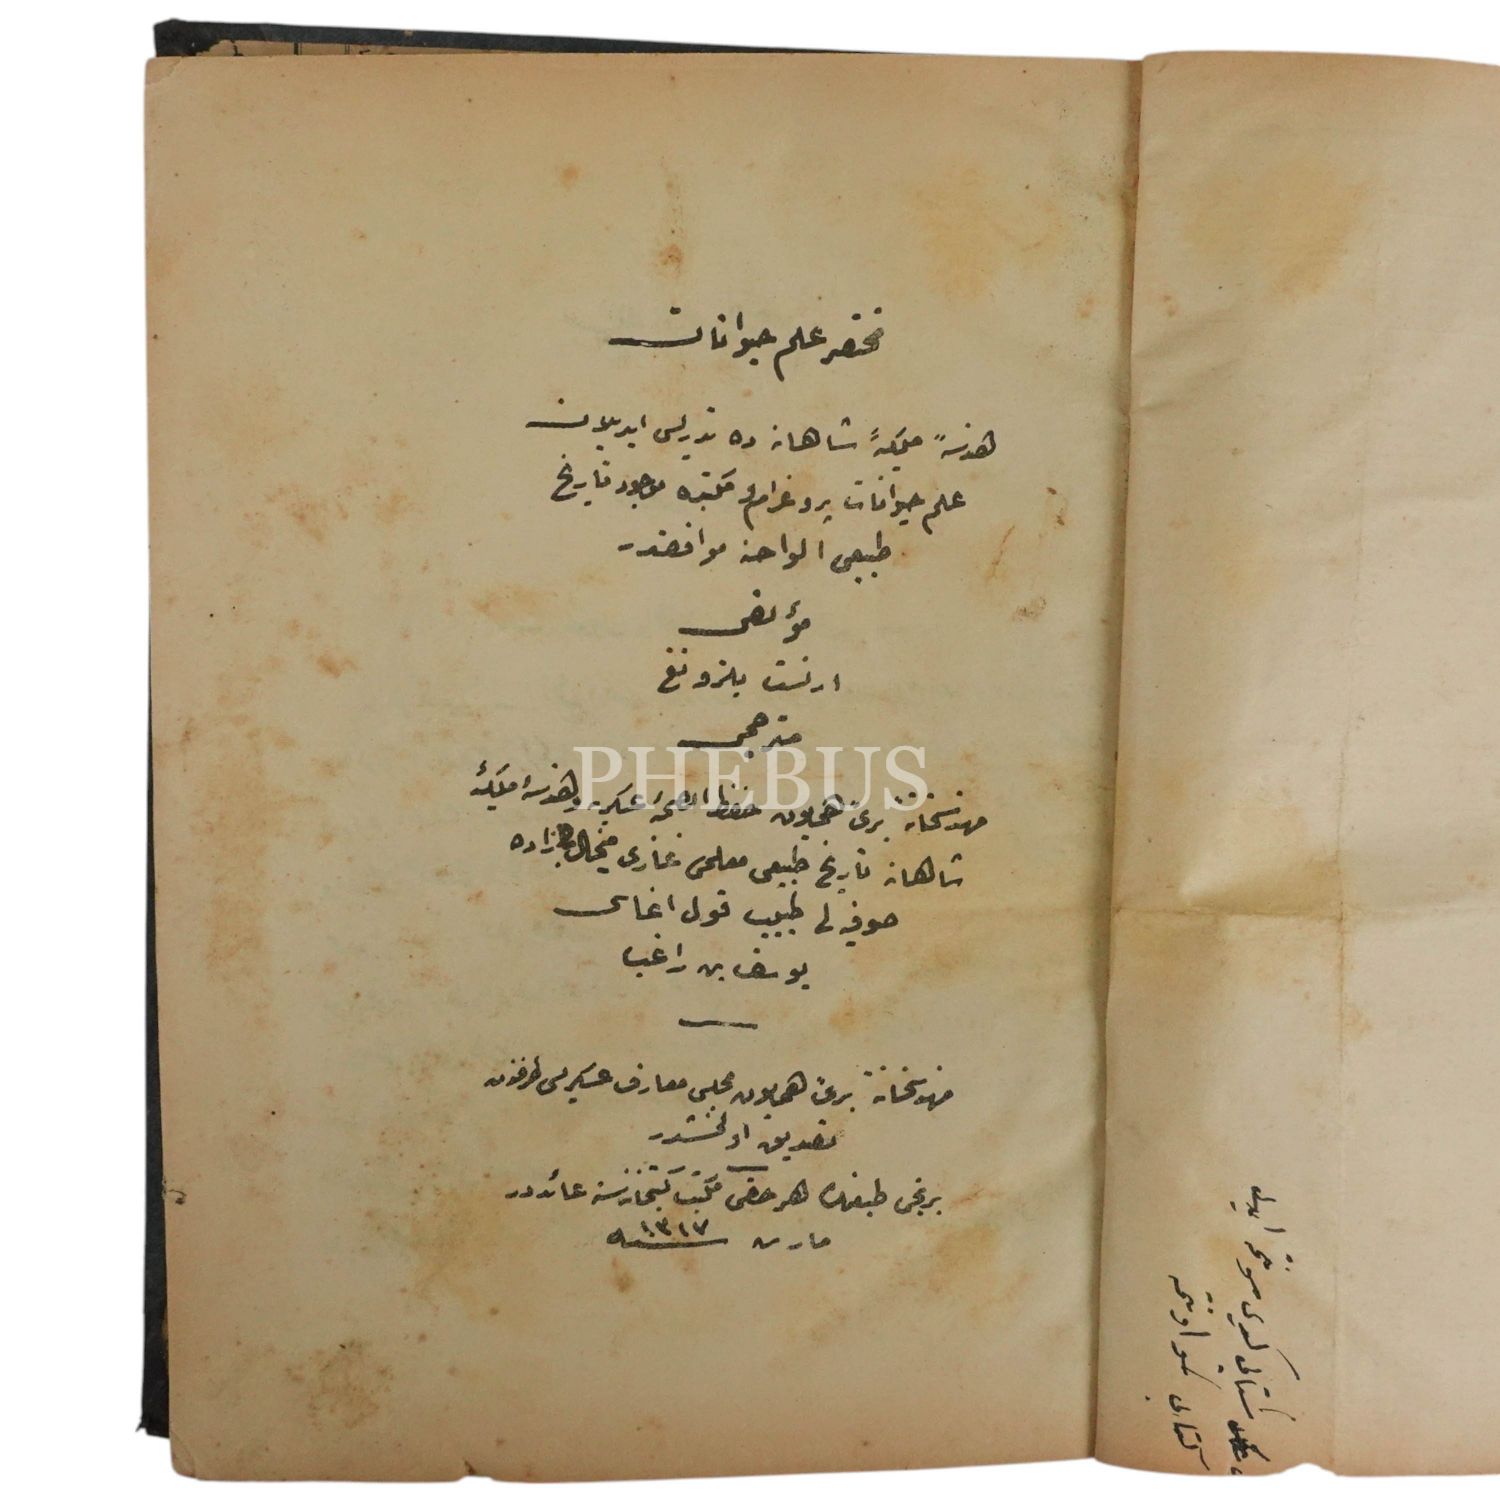 مختصر علم حیوانات
هندسهٔ ملکیهٔ شاهانه ده تدریس ایدیلان
علم حیوانات پروغرام و مکتبده موجود تاریخ
طبیعی الواحنه موافقدر
مؤلفی
ارنست
مترجمی
PHEBUS
مهندسخانهٔ بریٔ همایون حفظ الصحهٔ عسکریه و هندسهٔ ملکیهٔ
شاهانه تاریخ طبیعی معلمی غازی میخال زاده
صوفیه لی طبیب قول اغاسی
یوسف بن راغب
مهندسخانهٔ بریٔ همایون مجلس معارف عسکریسی طرفندن
تصدیق اولنمشدر
برنجی طبعنده هر حقی مکتب کتبخانه سنه عائددر
مارس سنه ١٣١٧